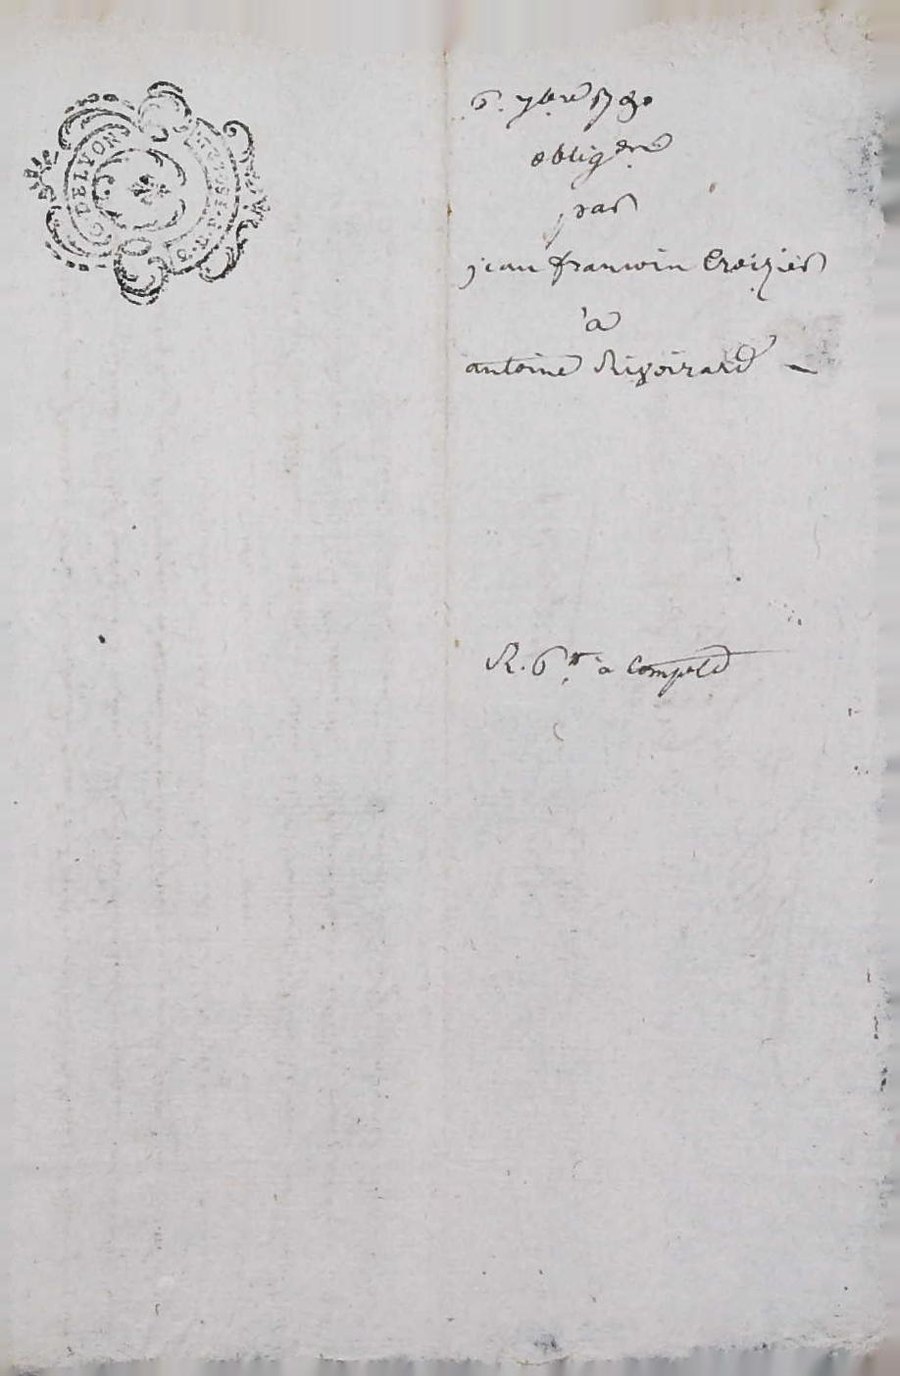 DE LYON
6. 7bre 1780
obligõn
par
jean francoin Croizier
à
antoine Rivoirard
R. 6tt à Compte